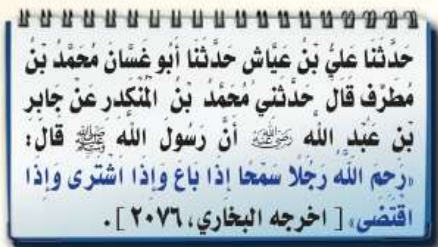 حَدَّثَنَا عَلِيُّ بْنُ عَيَّاشٍ حَدَّثَنَا أَبُو غَسَّانَ مُحَمَّدُ بْنُ
مُطَرِّفٍ قَالَ حَدَّثَنِي مُحَمَّدُ بْنُ الْمُنْكَدِرِ عَنْ جَابِرِ
بْنِ عَبْدِ اللَّهِ رضي الله عنه أَنَّ رَسُولَ اللَّهِ ﷺ قَالَ:
«رَحِمَ اللَّهُ رَجُلًا سَمْحًا إِذَا بَاعَ وَإِذَا اشْتَرَى وَإِذَا
اقْتَضَى» [ اخرجه البخاري، ٢٠٧٦ ].